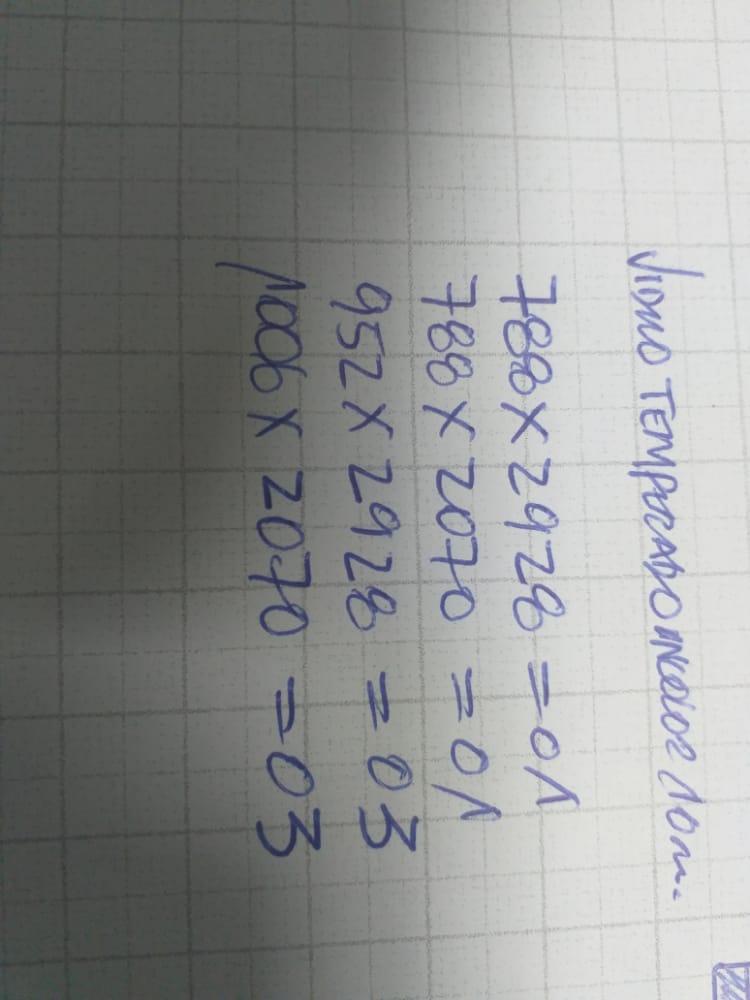 VIDRO TEMPERADO INCOLOR 10m.
788 X 2928 = 01
788 X 2070 = 01
952 X 2928 = 03
1006 X 2070 = 03